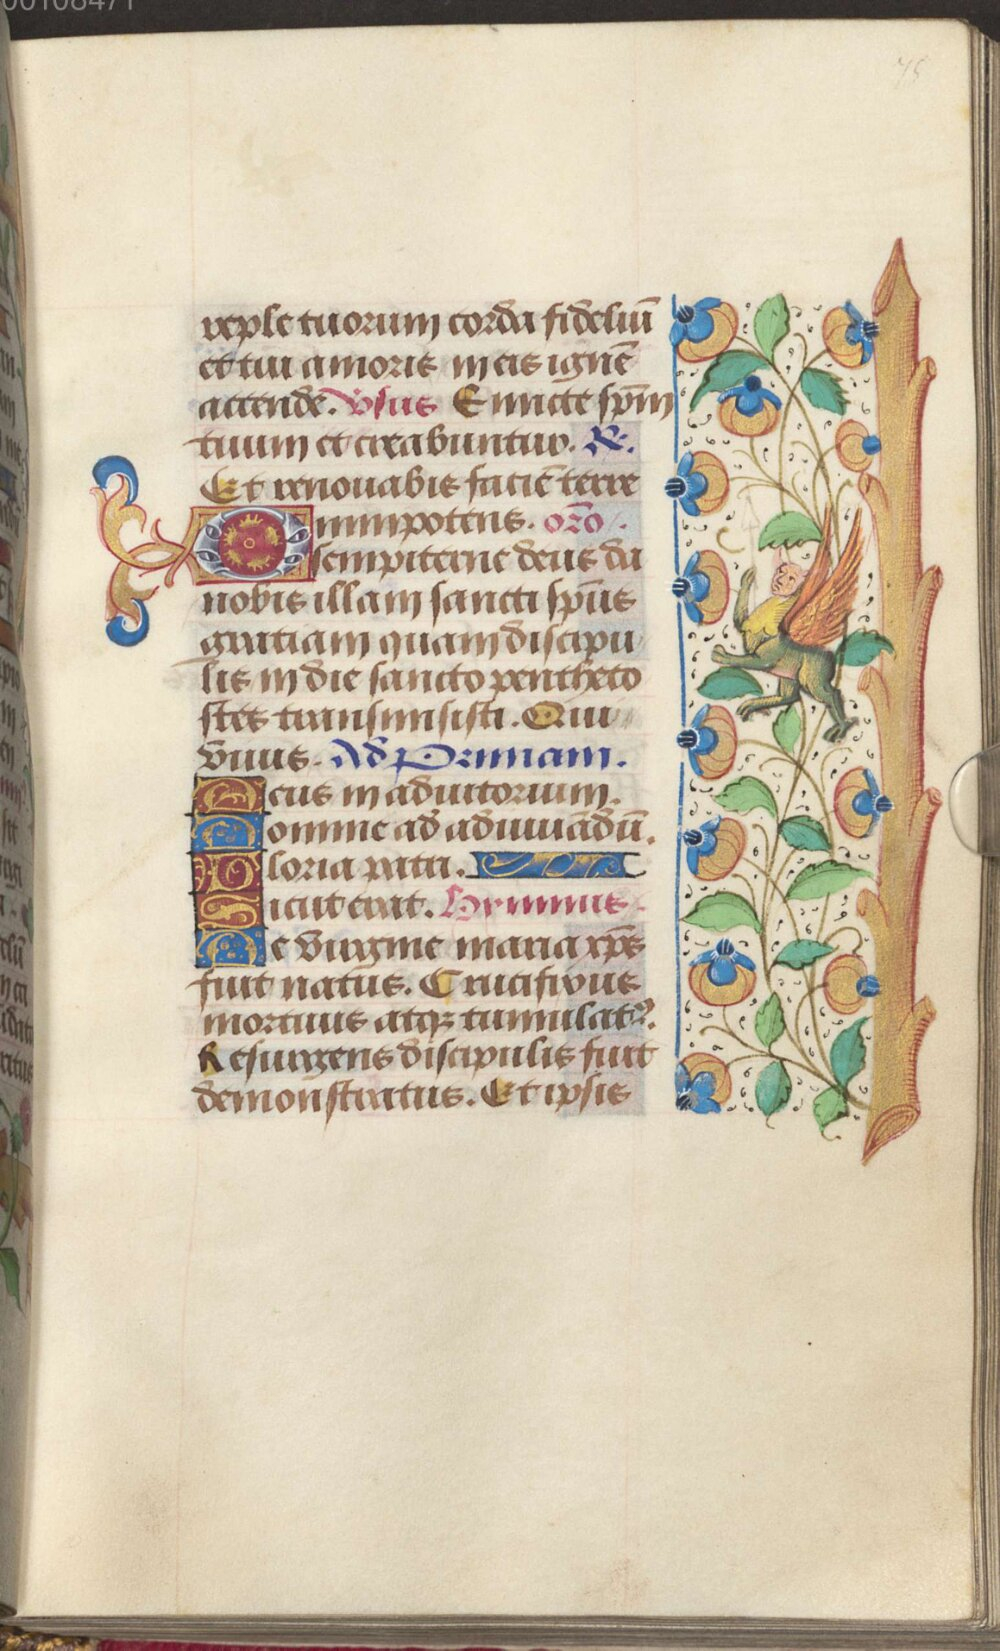 00108471
75
reple tuorum corda fideliū
et tui amoris in eis ignē
accende. Vsus Emitte sp̄m
tuum et creabuntur. R.
Et renouabis faciē terre
Omnipotens. oŕo.
sempiterne deus da
nobis illam sancti sp̄us
gratiam quam discipu
lis in die sancto pentheco
stes transmisisti. Qui
viuis. Ad Primam.
Deus in adiutorium.
Domine ad adiuuādū.
Gloria patri.
Sicut erat. Hymnus.
De virgine maria xp̄s
fuit natus. Crucifixus
mortuus atq; tumulatꝰ.
Resurgens discipulis fuit
demonstratus. Et ipsis